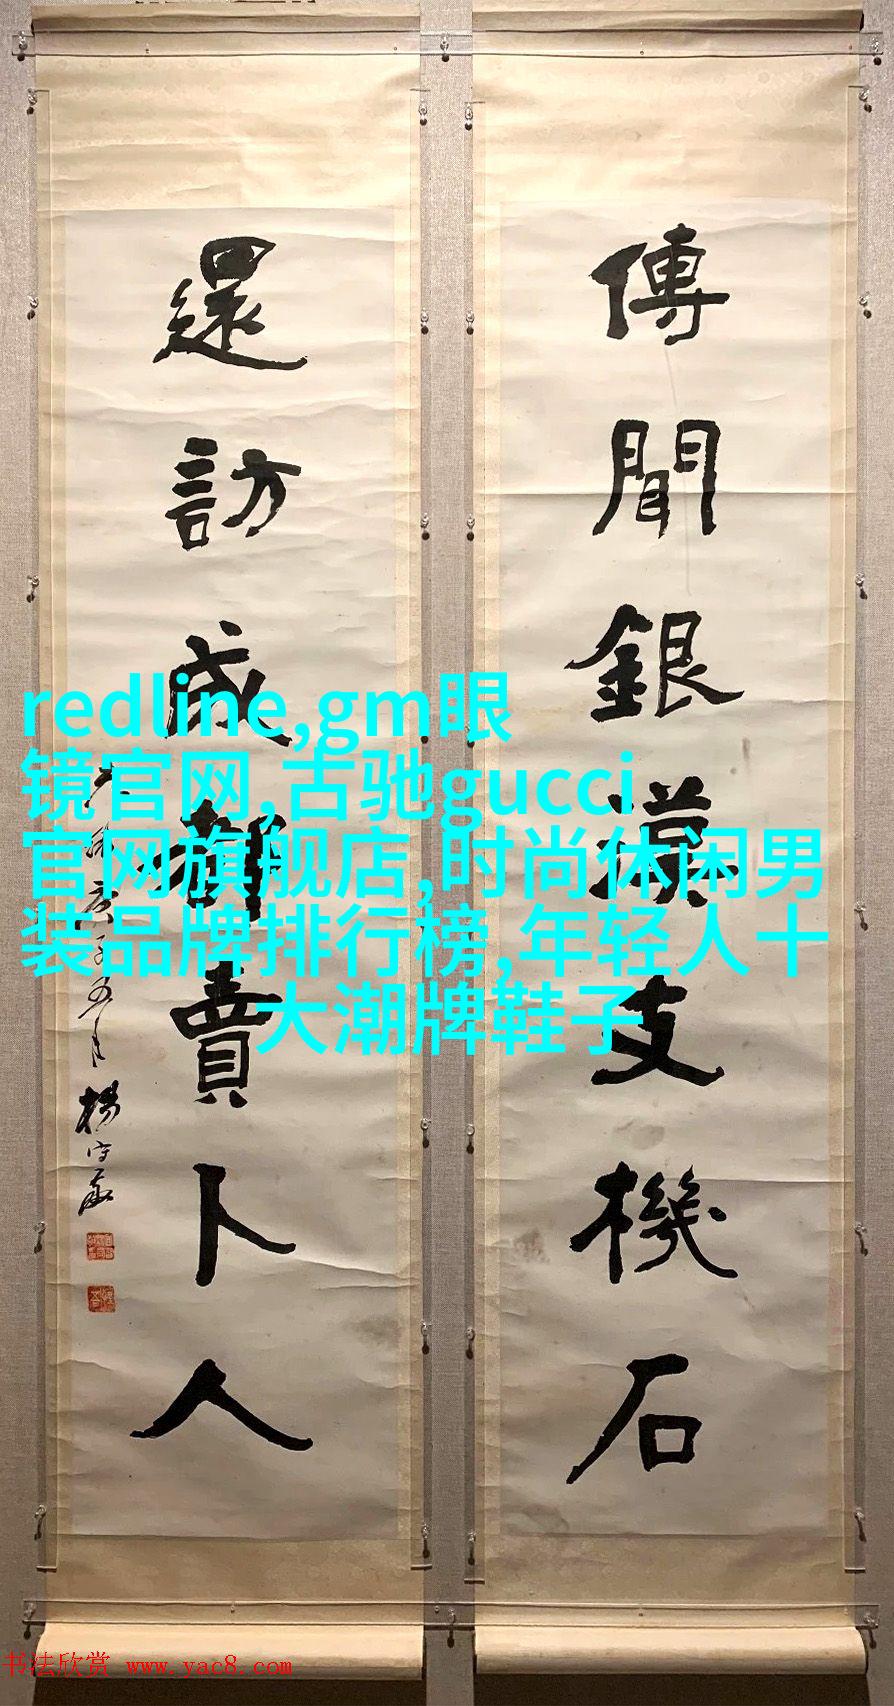 傳聞銀漢支機石
還訪成都賣卜人
光緒庚子五月楊守敬
redline,gm眼
镜官网,古驰gucci
官网旗舰店,时尚休闲男
装品牌排行榜,年轻人十
大潮牌鞋子
书法欣赏 www.yac8.com